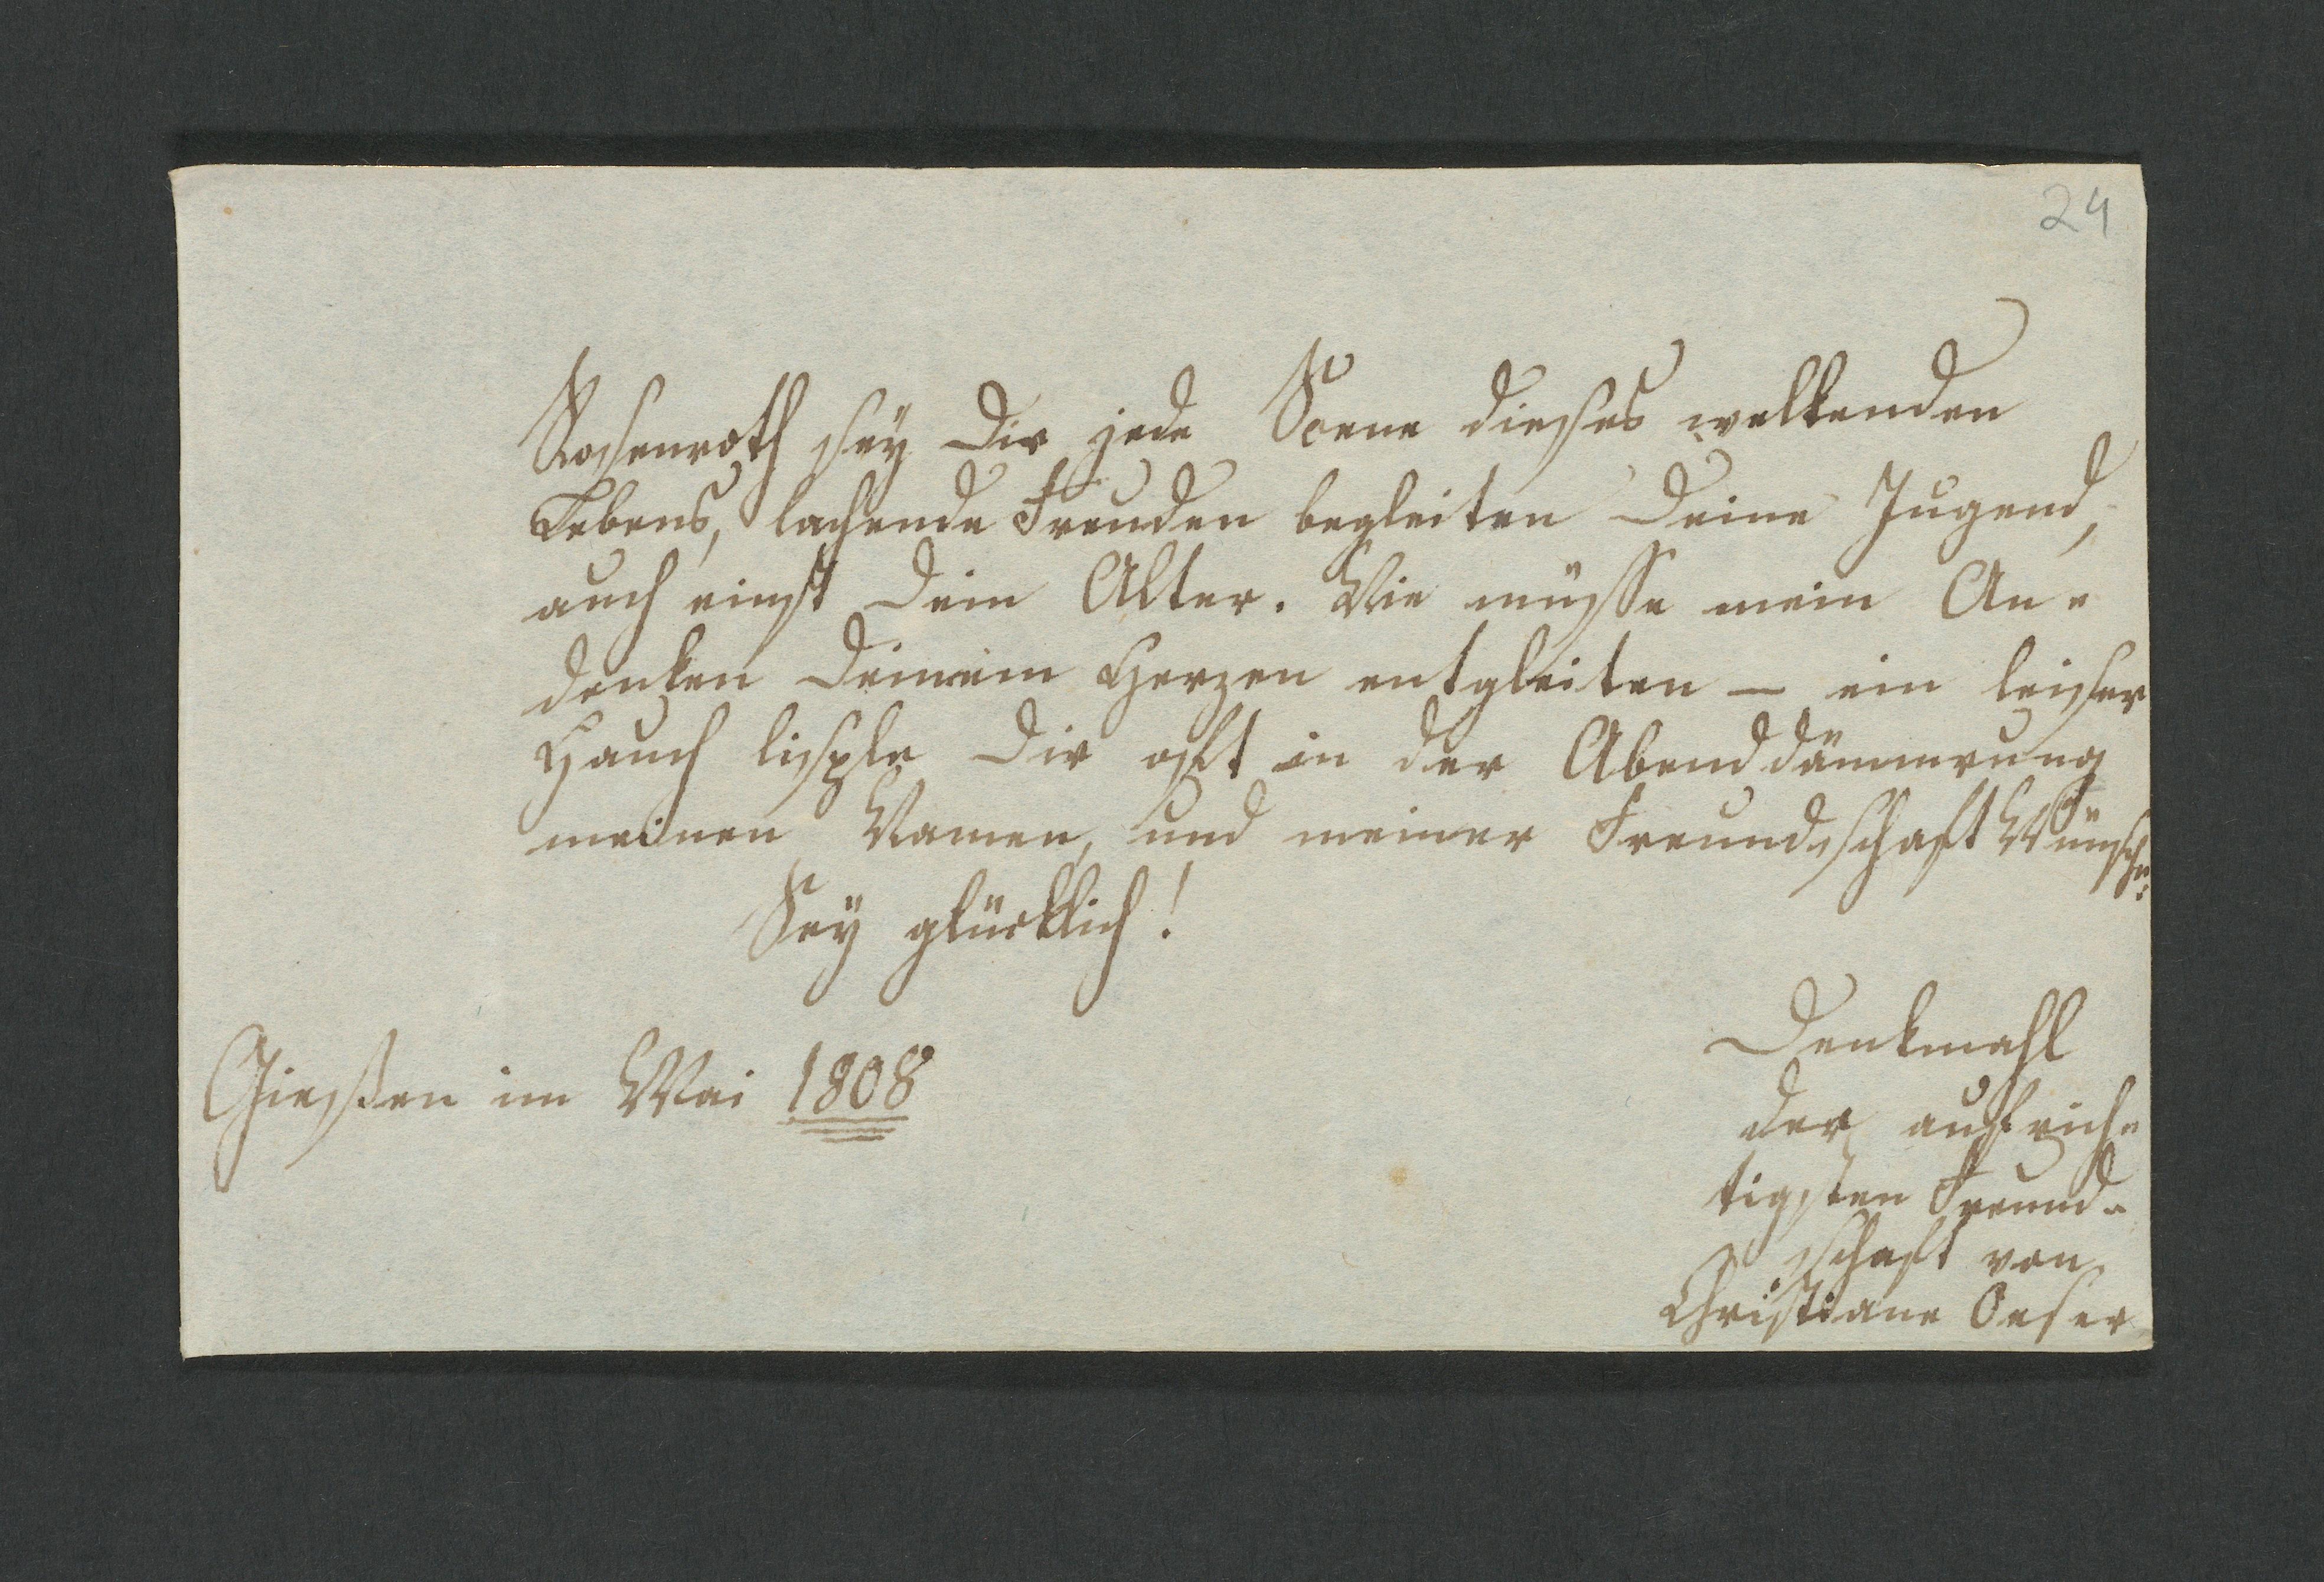 24
Rosenroth sey Dir jede Scene dieses welkenden
Lebens, lachende Freuden begleiten Deine Jugend,
auch einst Dein Alter. Nie müsse mein An-
denken Deinem Herzen entgleiten – ein leiser
Hauch lisple Dir oft in der Abenddämmrung
meinen Namen, und meiner Freundschaft Wünsche:
Sey glücklich!
Giessen im Mai 1808
Denkmahl
der aufrich-
tigsten Freund-
schaft von
Christiane Oeser